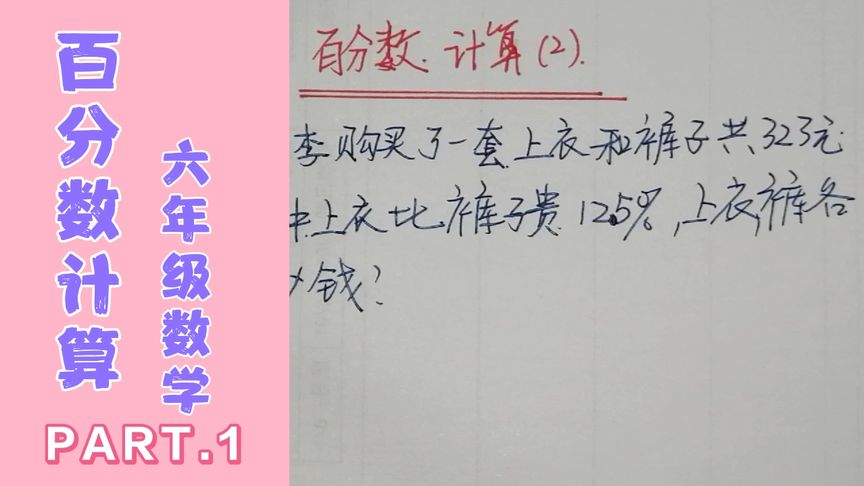 百分数计算
六年级数学
PART.1
百分数.计算(2).
李购买了一套上衣和裤子共323元
中上衣比裤子贵12.5%,上衣,裤各
少钱?